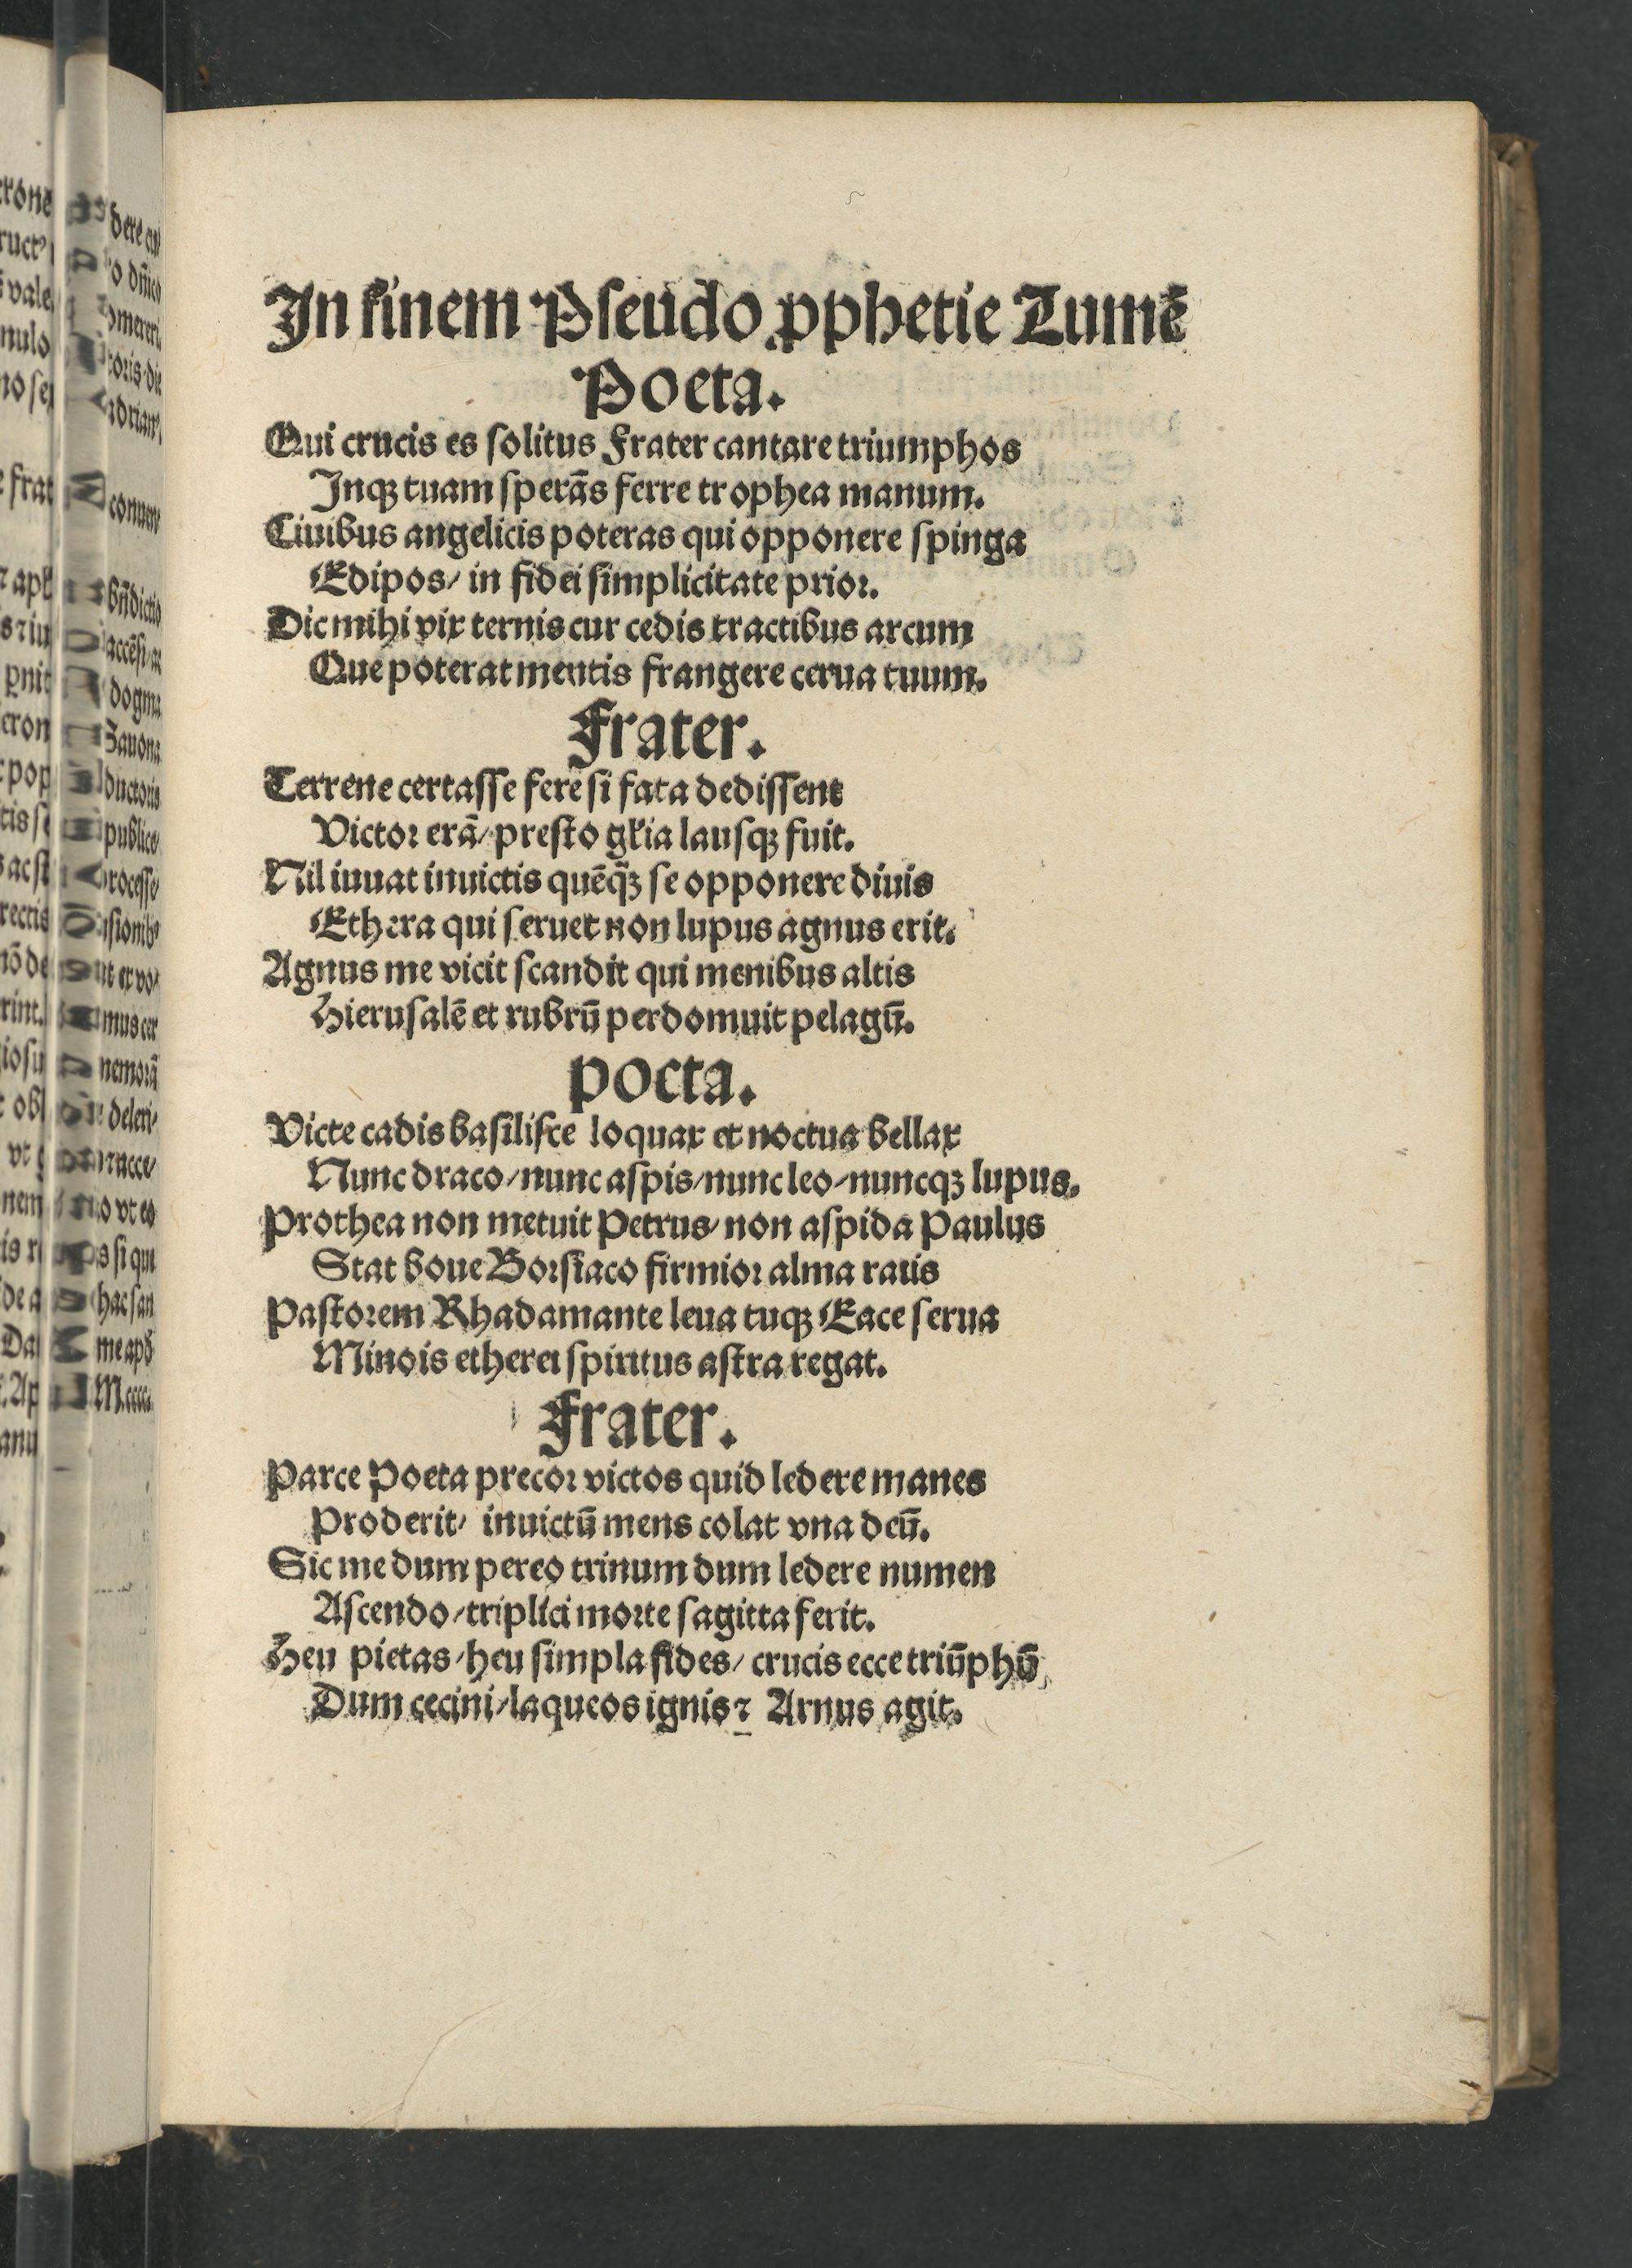 In finem Pseudo ꝓphetie Tumē
Poeta.
Qui crucis es solitus Frater cantare triumphos
Inqꝫ tuam sperās ferre trophea manum.
Ciuibus angelicis poteras qui opponere spinga
Edipos/ in fidei simplicitate prior.
Dic mihi vix ternis cur cedis tractibus arcum
Que poterat mentis frangere cerua tuum.
Frater.
Terrene certasse fere si fata dedissent
Victor erā/ presto gl̄ia lausqꝫ fuit.
Nil iuuat inuictis quēqꝫ se opponere diuis
Ethera qui seruet non lupus agnus erit.
Agnus me vicit scandit qui menibus altis
Hierusalē et rubrū perdomuit pelagū.
Poeta.
Victe cadis basilisce loquax et noctua bellax
Nunc draco/ nunc aspis/ nunc leo/ nuncqꝫ lupus.
Prothea non metuit Petrus/ non aspida Paulus
Stat boue Borsiaco firmior alma ratis
Pastorem Rhadamante leua tuqꝫ Eace serua
Minois etherei spiritus astra regat.
Frater.
Parce Poeta precor victos quid ledere manes
Proderit/ inuictū mens colat vna deū.
Sic me dum pereo trinum dum ledere numen
Ascendo/ triplici morte sagitta ferit.
Heu pietas/ heu simpla fides/ crucis ecce triūphū
Dum cecini/ laqueos ignis ⁊ Arnus agit.